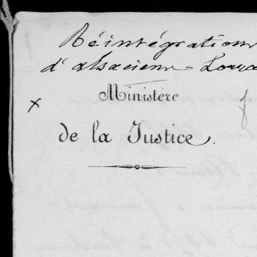 Réintégrations
d'alsaciens-Lorra
x
Ministère
de la Justice.